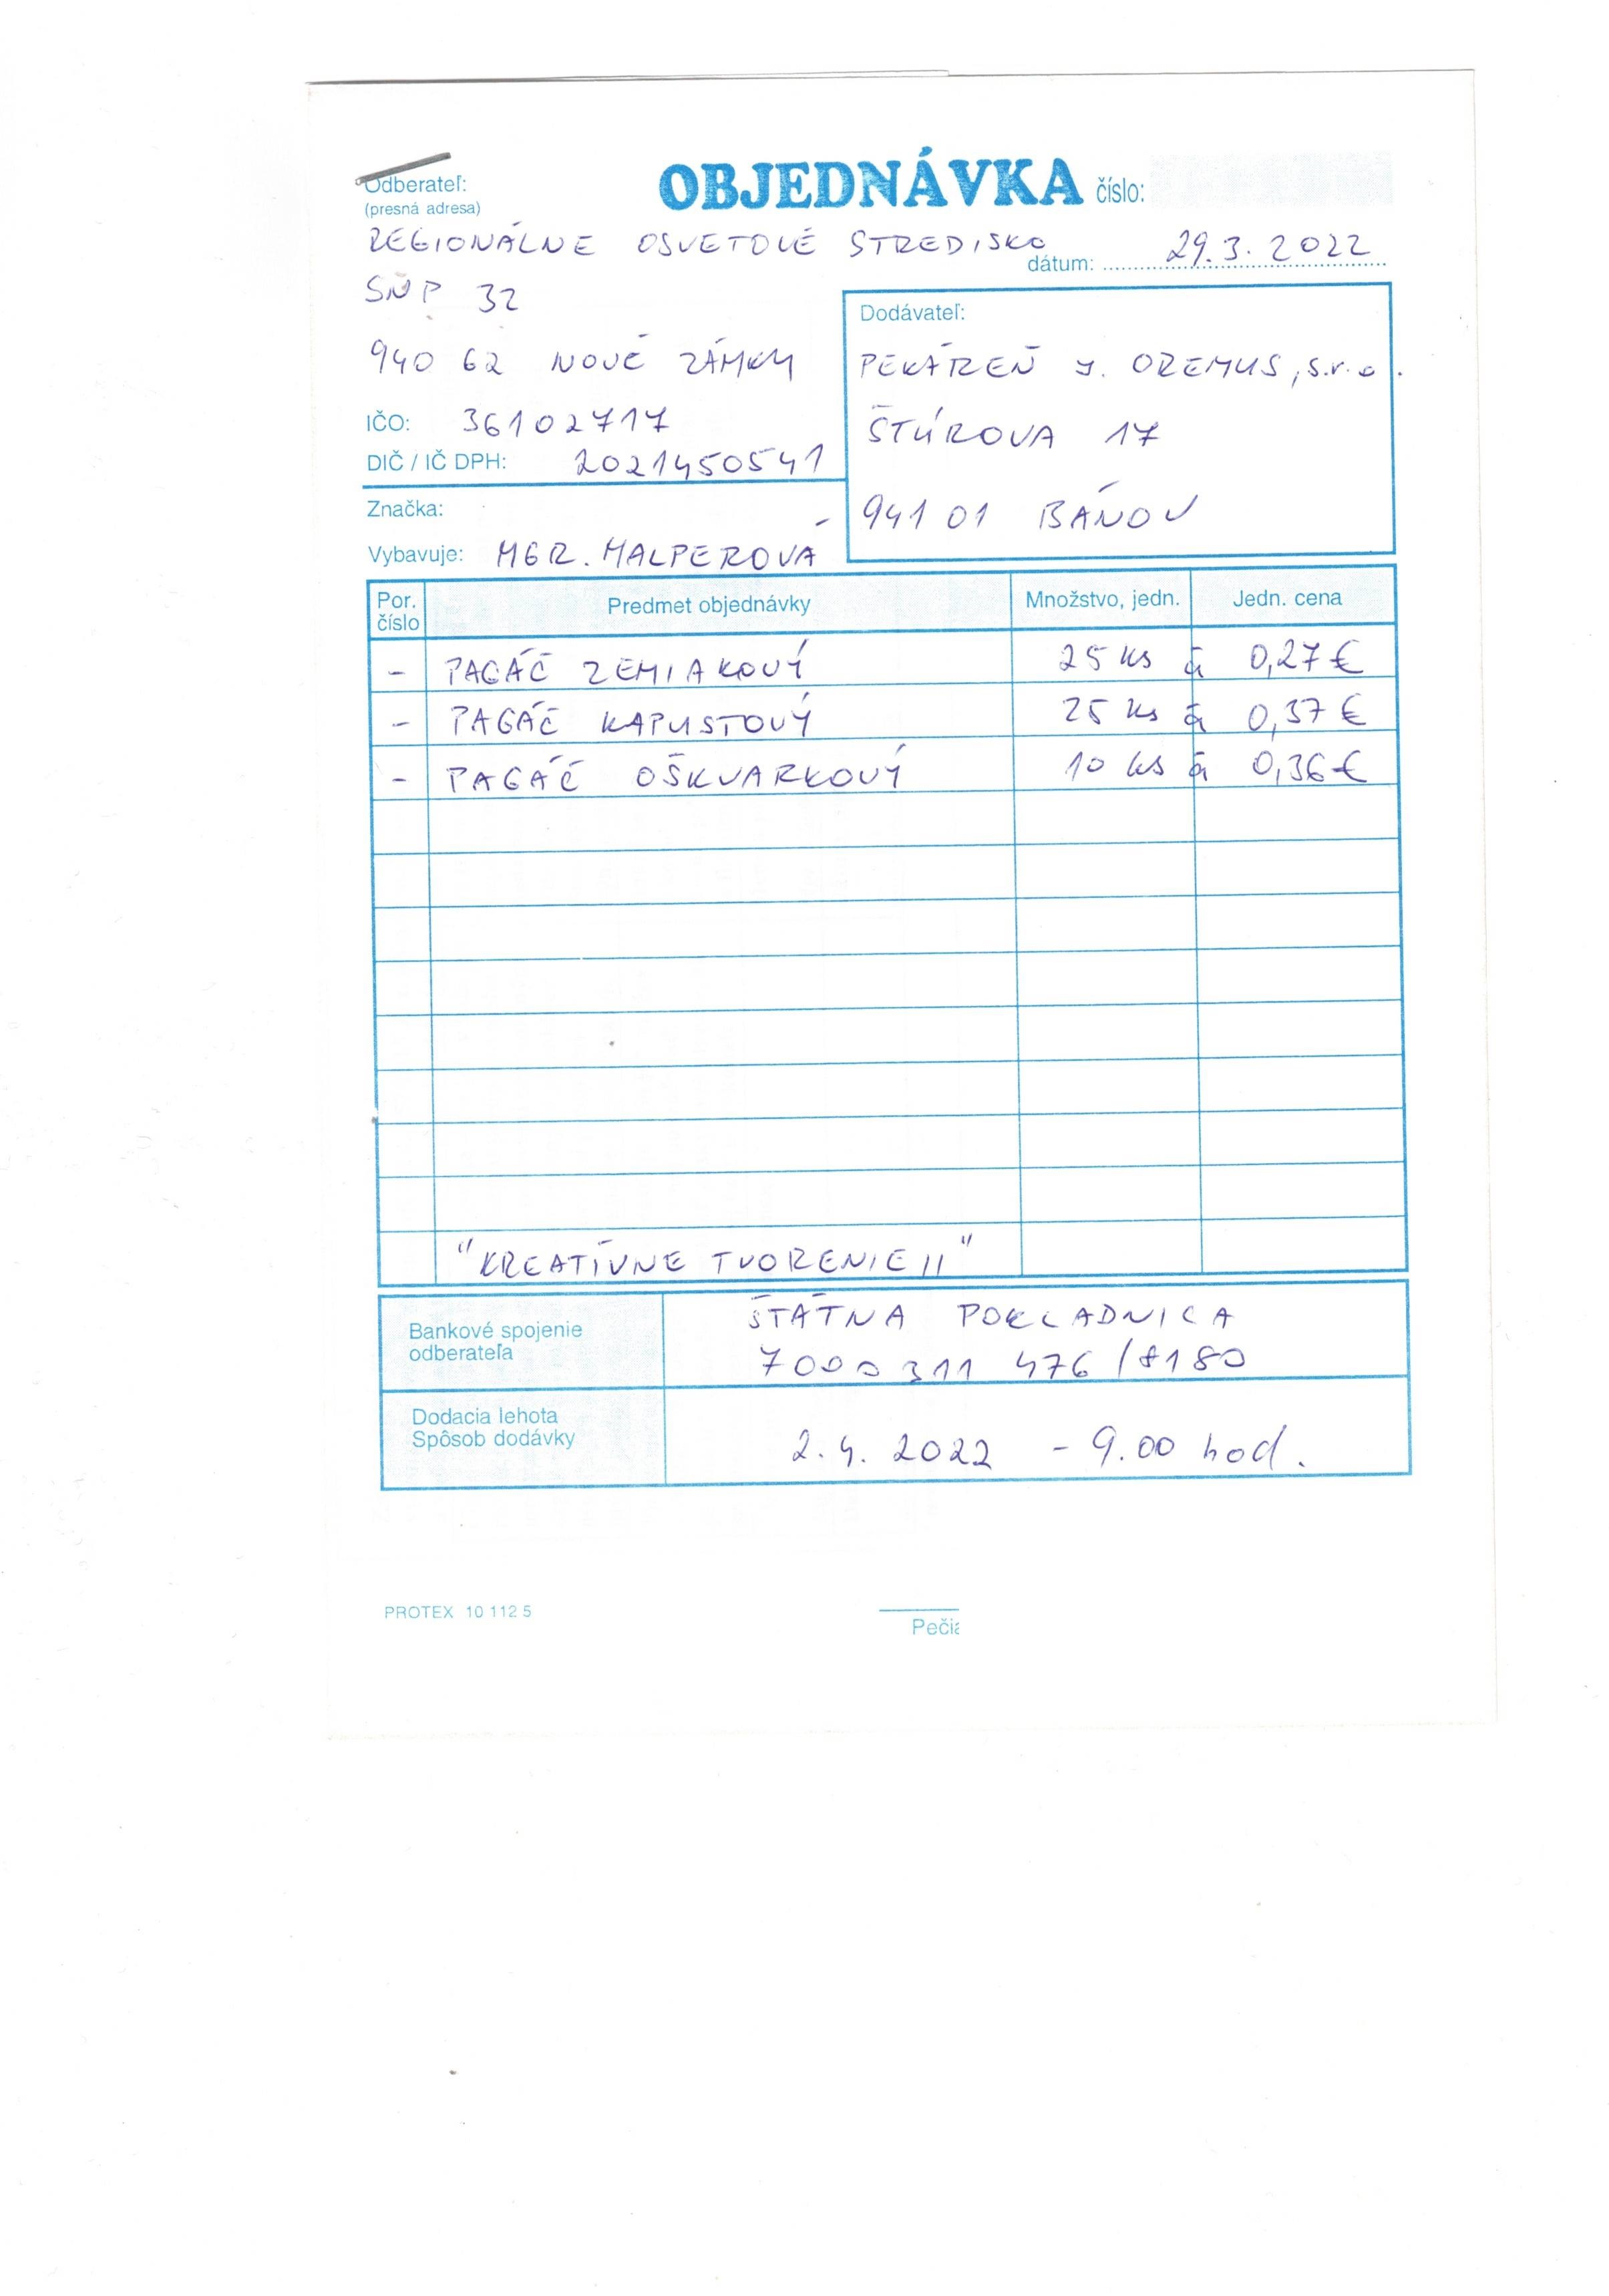 Odberateľ:
(presná adresa)
OBJEDNÁVKA číslo:
REGIONÁLNE OSVETOVÉ STREDISKO
dátum: 29.3.2022
SNP 32
940 62 NOVÉ ZÁMKY
IČO: 36102717
DIČ / IČ DPH: 2021450541
Značka:
Vybavuje: MGR. MALPEROVÁ
Dodávateľ:
PEKÁREŇ J. OREMUS, s.r.o.
ŠTÚROVA 17
941 01 BÁNOV
Por. číslo Predmet objednávky Množstvo, jedn. Jedn. cena
- PAGÁČ ZEMIAKOVÝ 25 ks á 0,27 €
- PAGÁČ KAPUSTOVÝ 25 ks á 0,37 €
- PAGÁČ OŠKVARKOVÝ 10 ks á 0,36 €
"KREATÍVNE TVORENIE II"
Bankové spojenie
odberateľa
ŠTÁTNA POKLADNICA
7000 311 476 / 8180
Dodacia lehota
Spôsob dodávky
2.4. 2022 - 9.00 hod.
PROTEX 10 112 5
Pečia